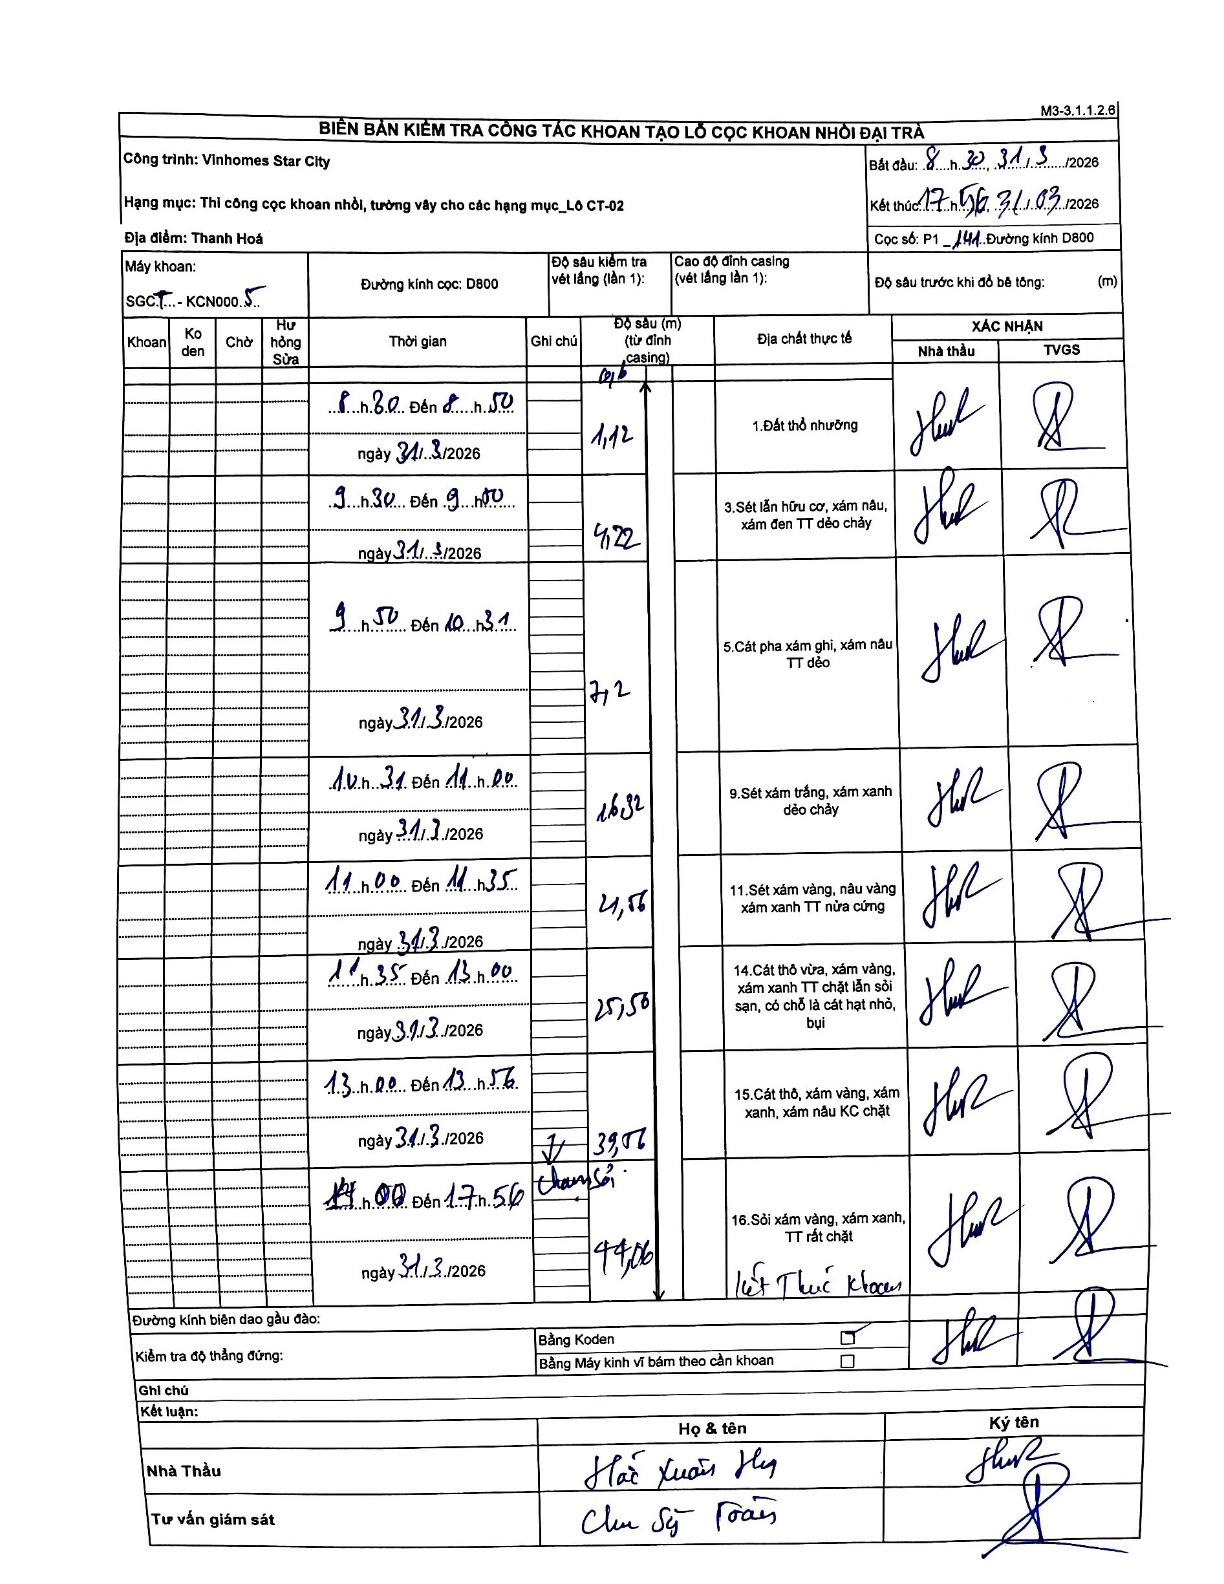 M3-3.1.1.2.6
BIÊN BẢN KIỂM TRA CÔNG TÁC KHOAN TẠO LỖ CỌC KHOAN NHỒI ĐẠI TRÀ
Công trình: Vinhomes Star City
Bắt đầu: 8 h 30, 31/3/2026
Hạng mục: Thi công cọc khoan nhồi, tường vây cho các hạng mục_Lô CT-02
Kết thúc: 17 h 56, 31/03/2026
Địa điểm: Thanh Hoá
Cọc số: P1_141..Đường kính D800
Máy khoan:
SGC.T...- KCN000.5..
Đường kính cọc: D800
Độ sâu kiểm tra vét lắng (lần 1):
Cao độ đỉnh casing (vét lắng lần 1):
Độ sâu trước khi đổ bê tông: (m)
Khoan Ko den Chờ Hư hỏng Sửa Thời gian Ghi chú Độ sâu (m) (từ đỉnh casing) Địa chất thực tế XÁC NHẬN
Nhà thầu TVGS
8 h 30 Đến 8 h 50
1,12
1.Đất thổ nhưỡng
ngày 31/3/2026
9 h 30 Đến 9 h
4,22
3.Sét lẫn hữu cơ, xám nâu,
xám đen TT dẻo chảy
ngày 31/3/2026
9 h 50 Đến 10 h 31
5.Cát pha xám ghi, xám nâu
TT dẻo
7,2
ngày 31/3/2026
10 h 31 Đến 11 h 00
16,32
9.Sét xám trắng, xám xanh
dẻo chảy
ngày 31/3/2026
11 h 00 Đến 11 h 35
21,56
11.Sét xám vàng, nâu vàng
xám xanh TT nửa cứng
ngày 31/3/2026
11 h 35 Đến 13 h 00
25,56
14.Cát thô vừa, xám vàng,
xám xanh TT chặt lẫn sỏi
sạn, có chỗ là cát hạt nhỏ,
bụi
ngày 31/3/2026
13 h 00 Đến 13 h 56
15.Cát thô, xám vàng, xám
xanh, xám nâu KC chặt
ngày 31/3/2026
39,06
Chạm Sỏi
14 h 00 Đến 17 h 56
44,06
16.Sỏi xám vàng, xám xanh,
TT rất chặt
ngày 31/3/2026
Kết Thúc Khoan
Đường kính biên dao gầu đào:
Kiểm tra độ thẳng đứng:
Bằng Koden
Bằng Máy kinh vĩ bám theo cần khoan
Ghi chú
Kết luận:
Họ & tên Ký tên
Nhà Thầu
Hắc Xuân Huy
Tư vấn giám sát
Chu Sỹ Toàn